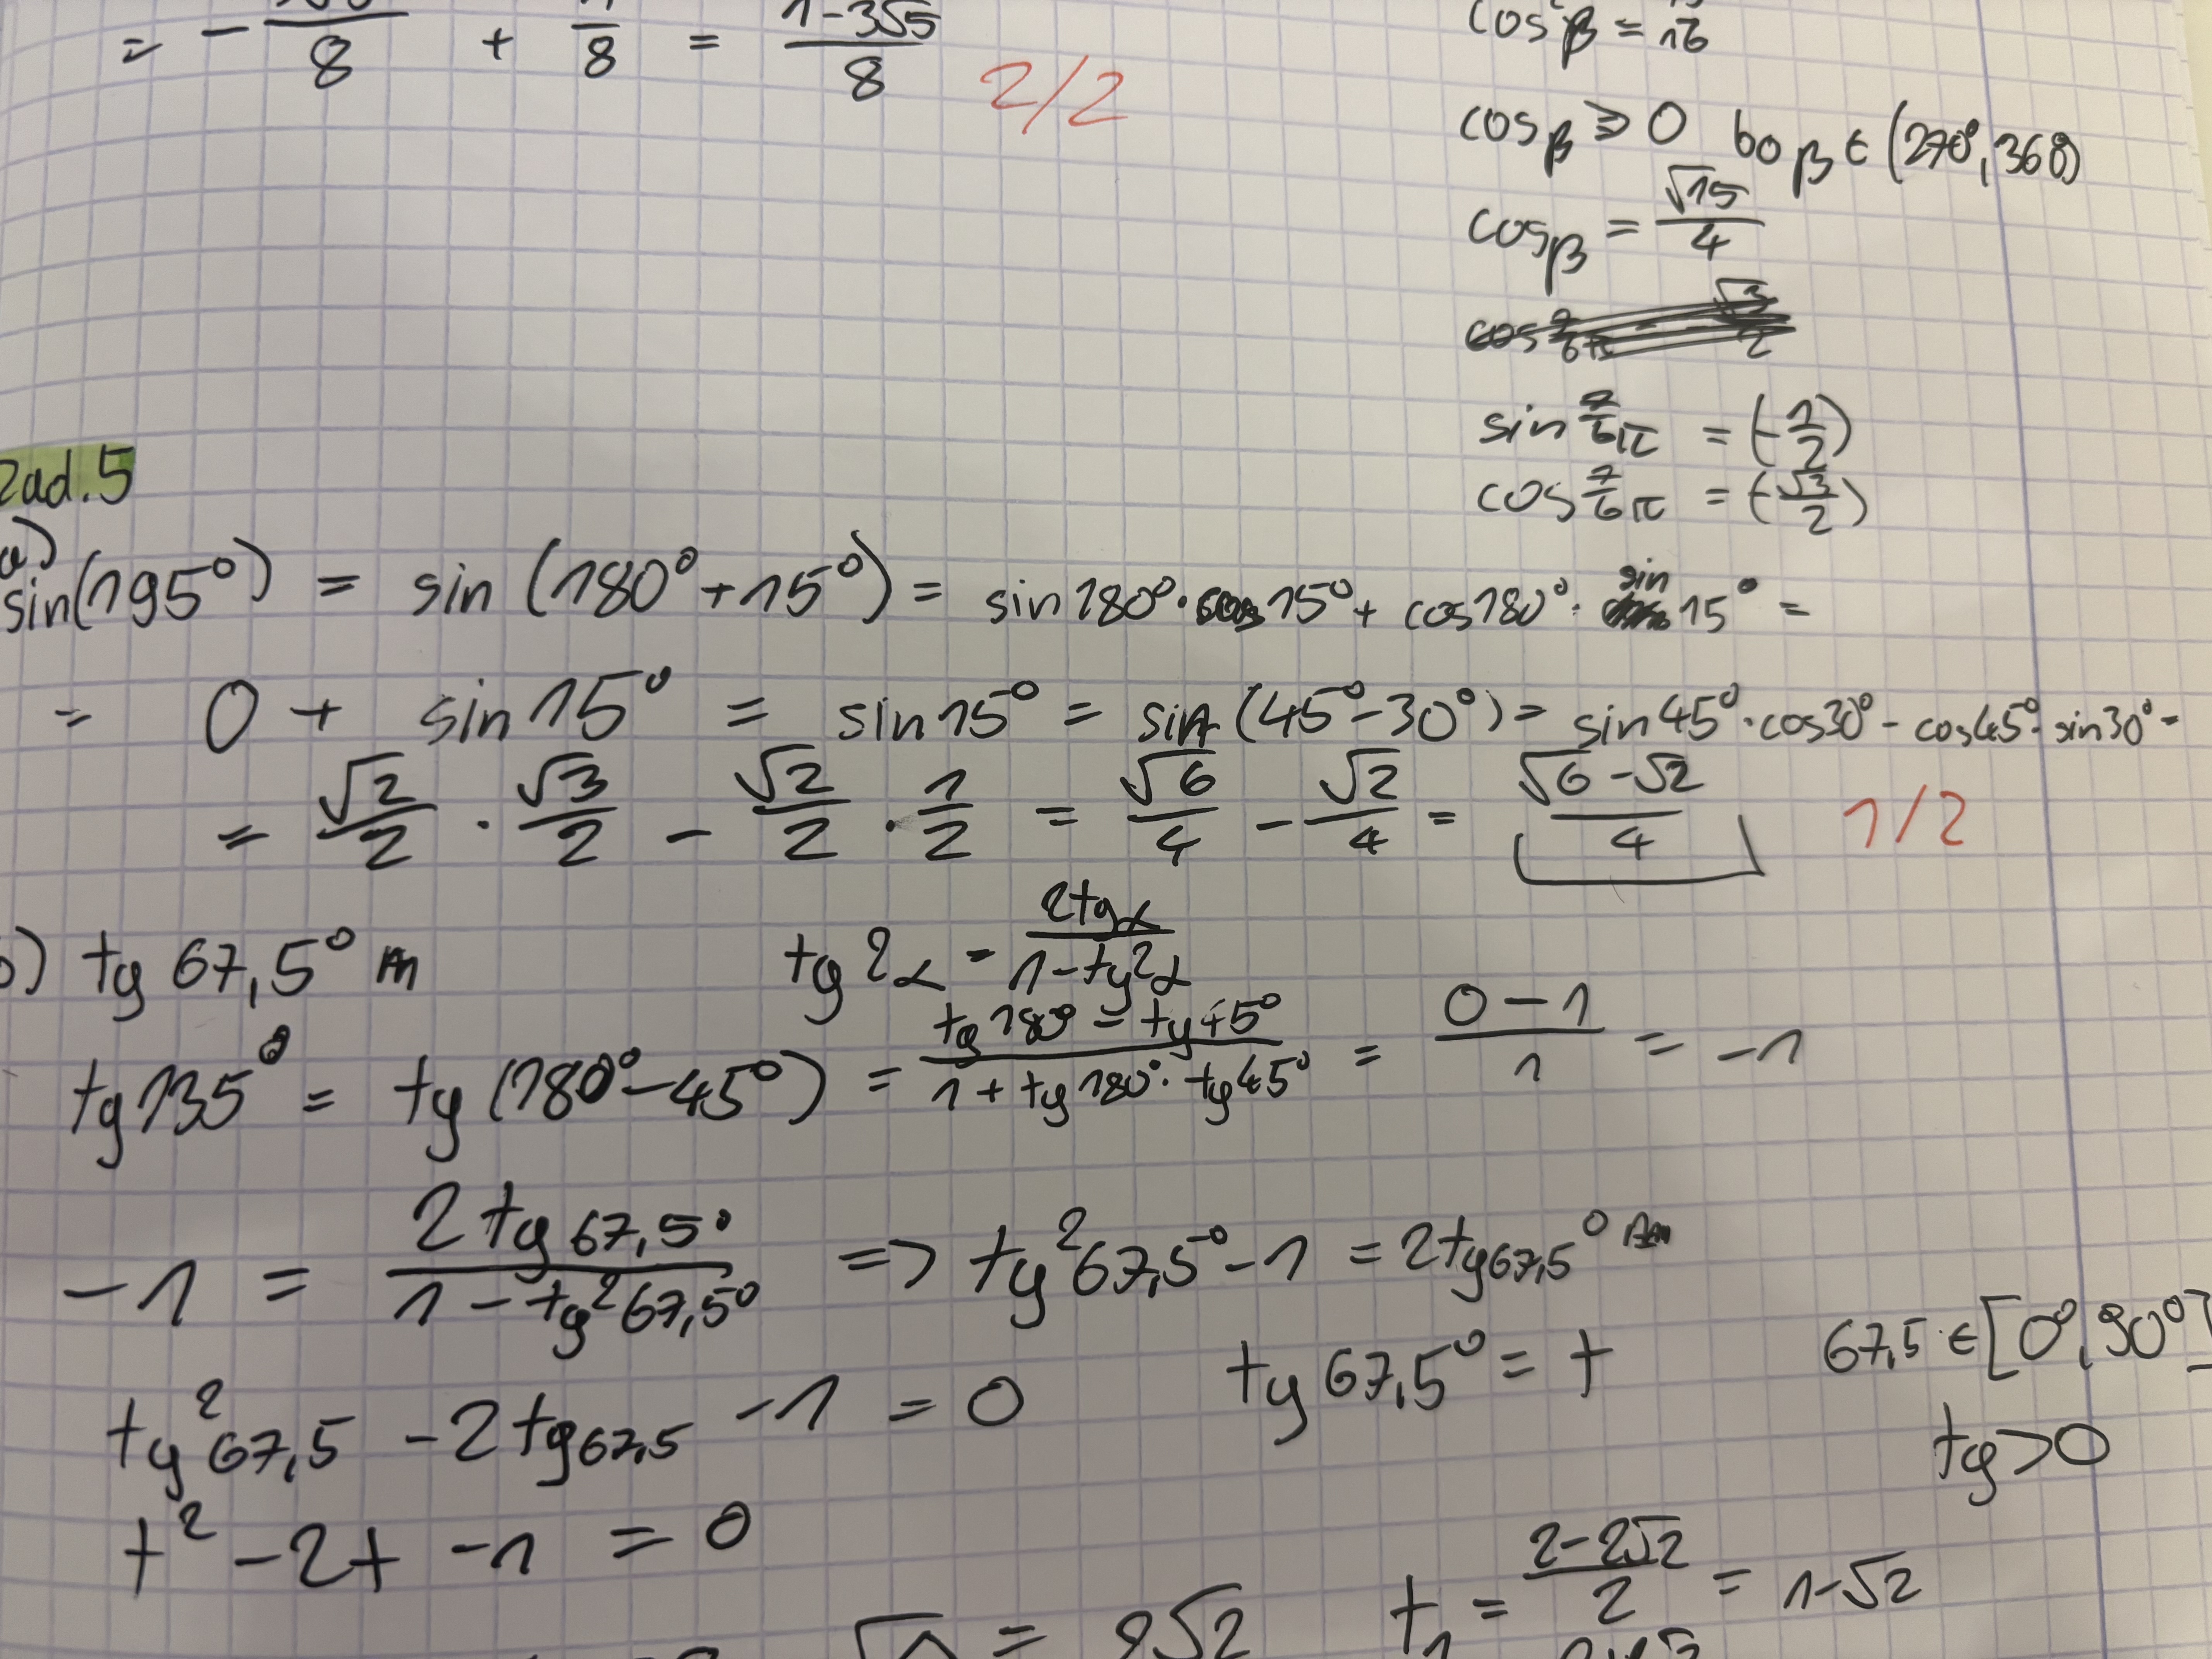 = - /8 + /8 = (1-3√5)/8 2/2
cos²β = /16
cosβ ⩾ 0 bo β ∈ (270°, 360)
cosβ = √15/4
sin 7/6 π = (-1/2)
cos 7/6 π = (-√3/2)
Zad.5
a)
sin(195°) = sin (180°+15°) = sin180°·cos15° + cos180°· sin15° =
= 0 + sin15° = sin15° = sin (45°-30°) = sin45°·cos30° - cos45°·sin30° =
= √2/2 · √3/2 - √2/2 · 1/2 = √6/4 - √2/4 = (√6-√2)/4 1/2
b) tg 67,5° tg2α = 2tgα/(1-tg²α)
tg135° = tg (180°-45°) = (tg180° = tg45°)/(1+tg180°·tg45°) = (0-1)/1 = -1
-1 = 2tg67,5°/(1-tg²67,5°) => tg²67,5° -1 = 2tg67,5°
tg 67,5° = t 67,5 ∈ [0°, 90°]
tg²67,5 -2tg67,5 -1 = 0 tg>0
t² -2t -1 = 0
= 2√2 t₁ = (2-2√2)/2 = 1-√2